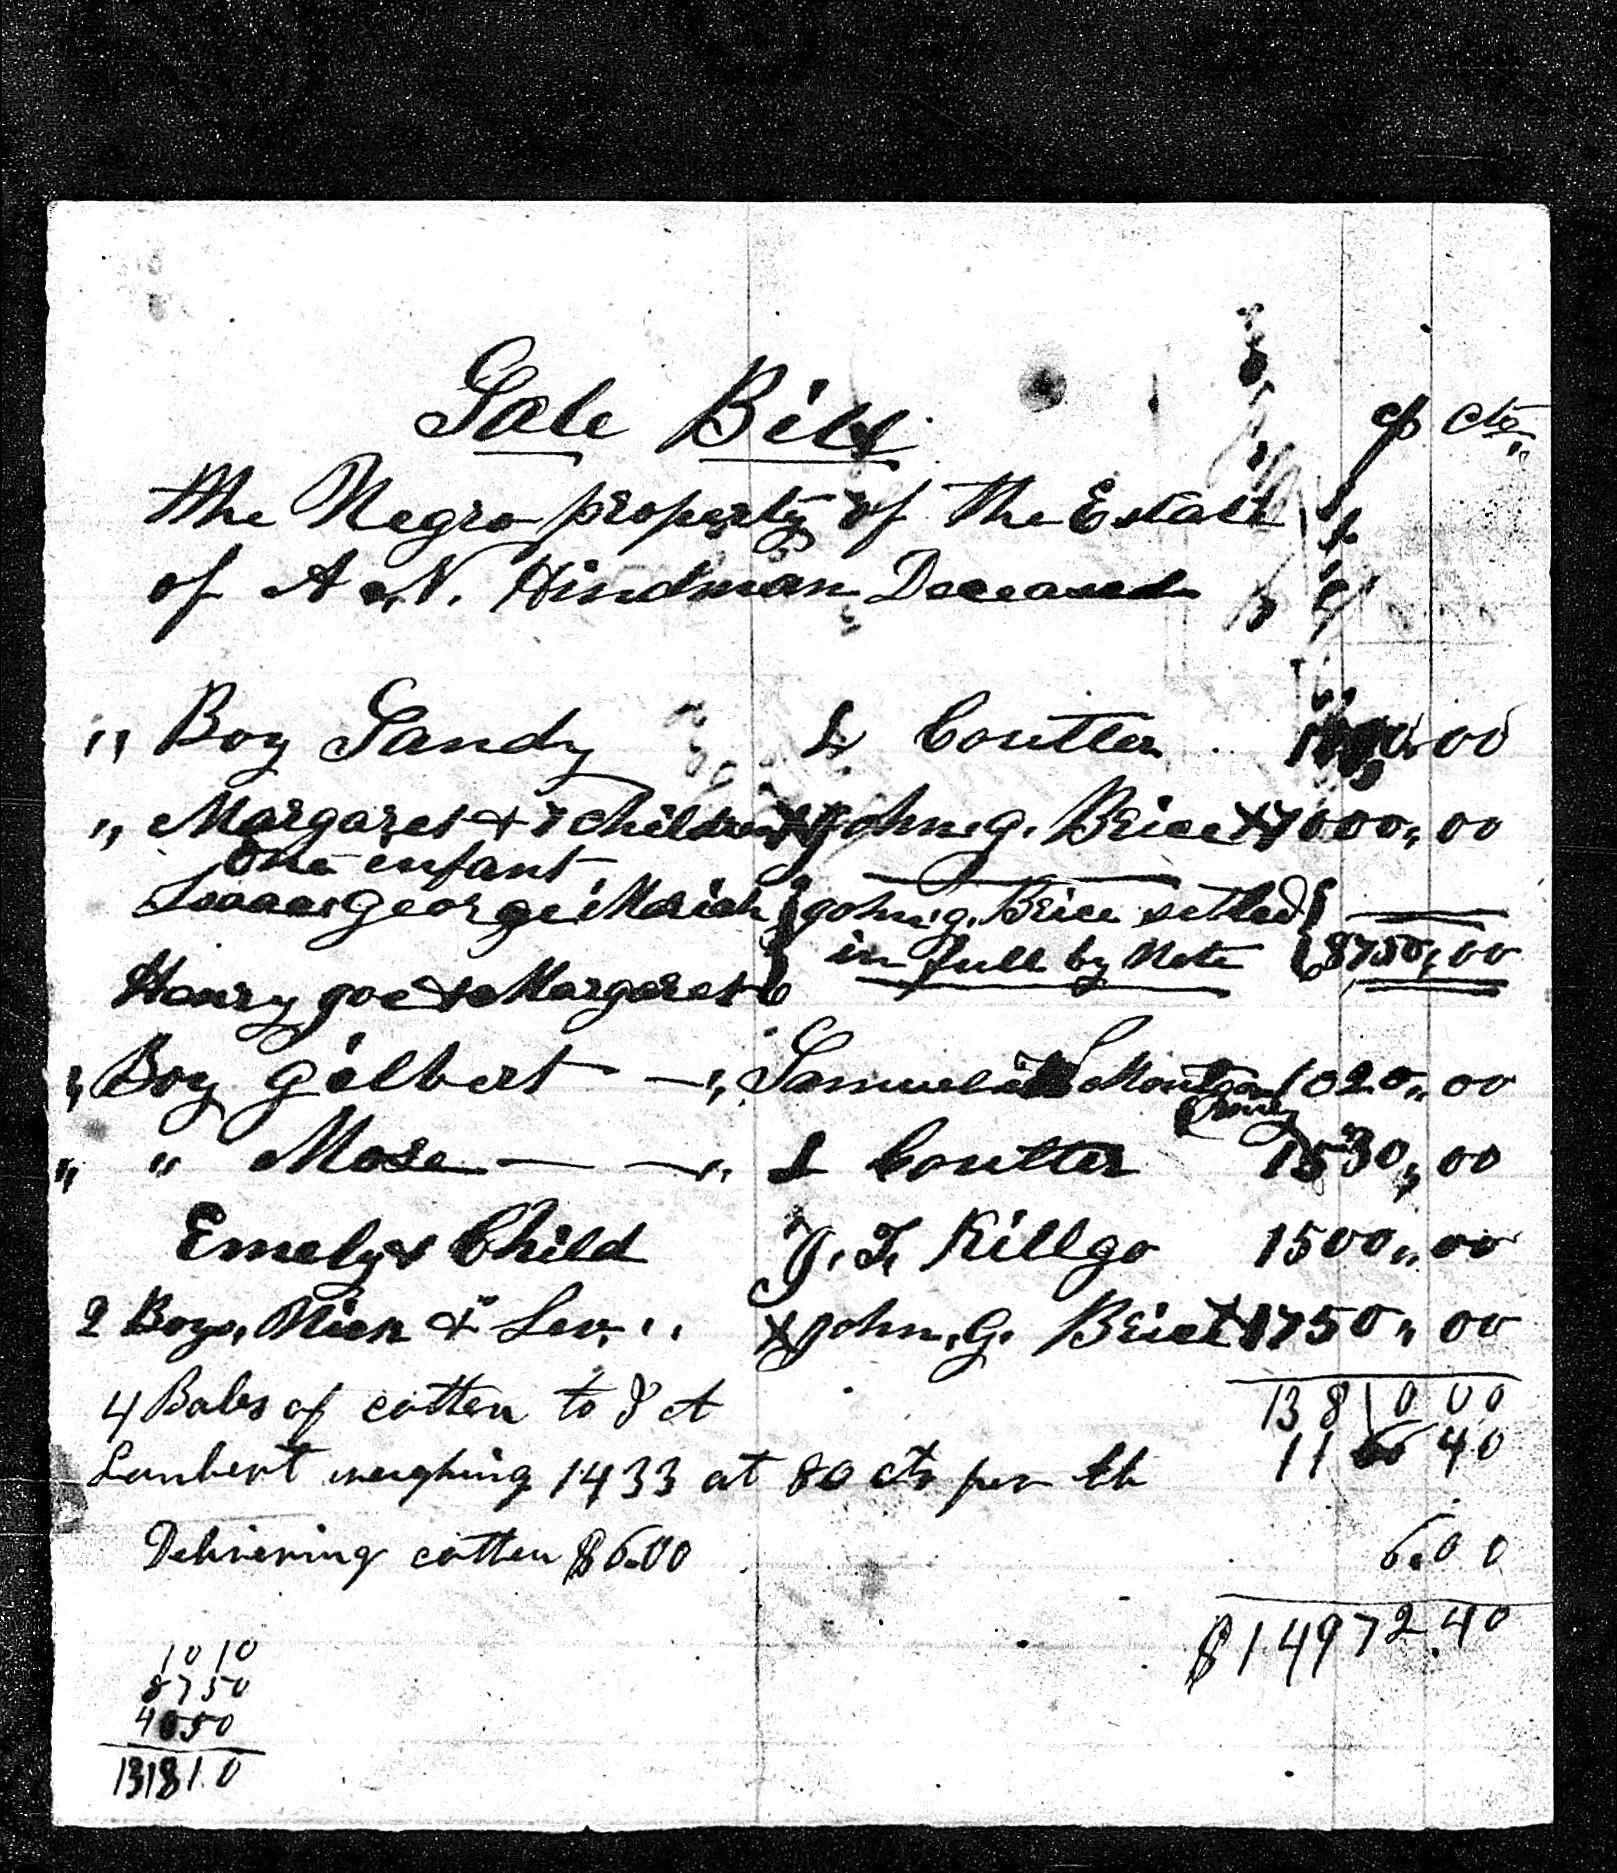 Sale Bill
$ cts
the Negro property of the Estate
of A. N. Hindman Deceased
" Boy Sandy L Coulter 00
" Margaret & 7 children John. G. Brice 7000,, 00
One infant
Isaac George Mariah { John G. Brice setled }
in full by Note { 8750,, 00
Henry Joe & Margaret
" Boy Gilbert — " Samuel Montgomery 1020,, 00
" " Mose — — " L Coulter 1530,, 00
Emely & Child J. F. Killgo 1500,, 00
2 Boys, Nick & Lev, " x John. G. Brice x 1750,, 00
13810 00
4 Bales of cotten to J A
Lambert weighing 1433 at 80 cts per lb 11 40
Delivering cotten $6.00 6.00
$14972.40
1010
8750
4050
13810